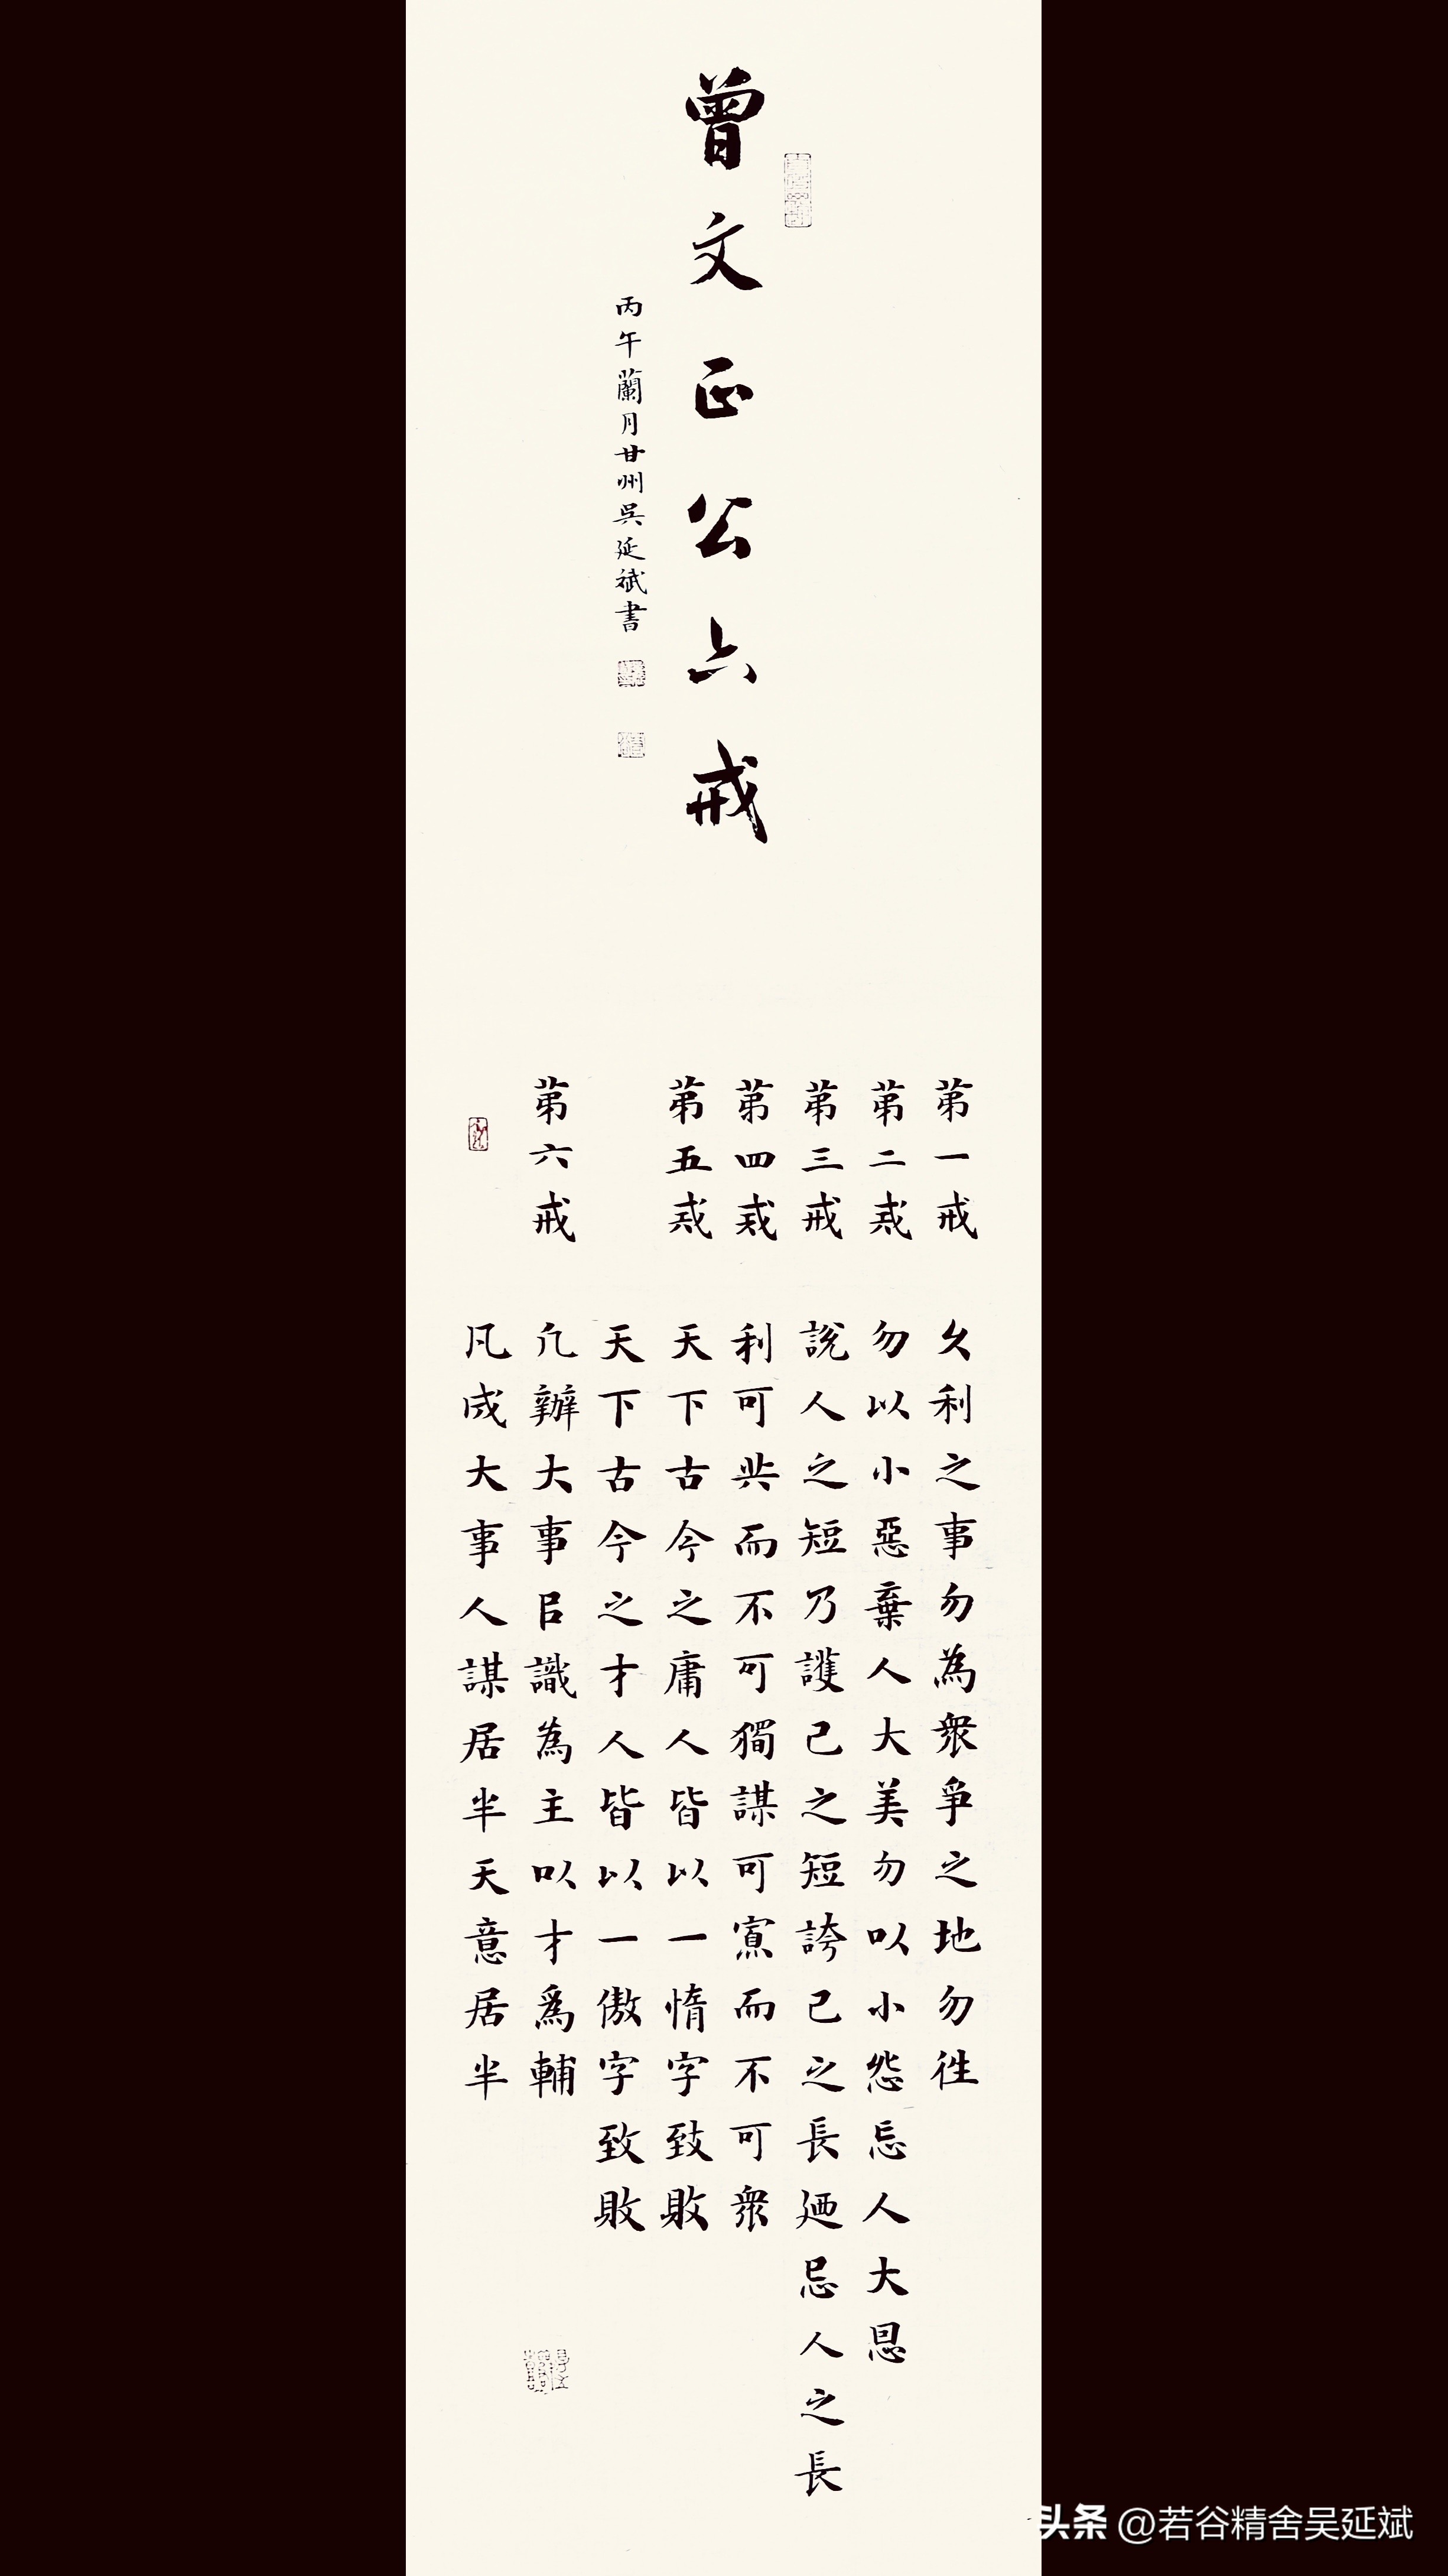 曾文正公六戒
丙午蘭月甘州吳延斌書
第一戒 久利之事勿為衆爭之地勿往
第二戒 勿以小惡棄人大美勿以小怨忘人大恩
第三戒 說人之短乃護己之短誇己之長廼忌人之長
第四戒 利可共而不可獨謀可寡而不可衆
第五戒 天下古今之庸人皆以一惰字致敗
天下古今之才人皆以一傲字致敗
第六戒 凡辦大事㠯識為主以才爲輔
凡成大事人謀居半天意居半
头条 @若谷精舍吴延斌